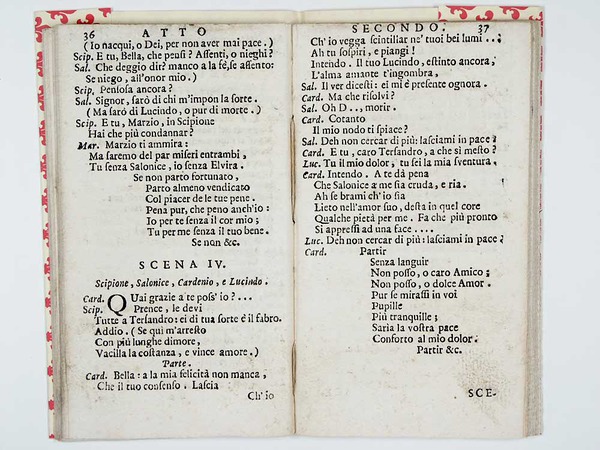 36 ATTO
(Io nacqui, o Dei, per non aver mai pace.)
Scip. E tu, Bella, che pensi? Assenti, o nieghi?
Sal. Che deggio dir? manco a la fè, se assento:
Se niego, all'onor mio.)
Scip. Pensosa ancora?
Sal. Signor, farò di chi m'impon la sorte.
(Ma sarò di Lucindo, o pur di morte.)
Scip. E tu, Marzio, in Scipione
Hai che più condannar?
Mar. Marzio ti ammira:
Ma saremo del par miseri entrambi,
Tu senza Salonice, io senza Elvira.
Se non parto fortunato,
Parto almeno vendicato
Col piacer de le tue pene.
Pena pur, che peno anch'io:
Io per te senza il cor mio;
Tu per me senza il tuo bene.
Se non &c.
SCENA IV.
Scipione, Salonice, Cardenio, e Lucindo.
Card. QUai grazie a te poss' io?...
Scip. Prence, le devi
Tutte a Tersandro: ei di tua sorte è il fabro.
Addio. (Se quì m'arresto
Con più lunghe dimore,
Vacilla la costanza, e vince amore.)
Parte.
Card. Bella: a la mia felicità non manca,
Che il tuo consenso. Lascia
Ch' io
SECONDO. 37
Ch' io vegga scintillar ne' tuoi bei lumi...
Ah tu sospiri, e piangi!
Intendo. Il tuo Lucindo, estinto ancora,
L'alma amante t'ingombra,
Sal. Il ver dicesti: ei mi è presente ognora.
Card. Ma che risolvi?
Sal. Oh D.., morir.
Card. Cotanto
Il mio nodo ti spiace?
Sal. Deh non cercar di più: lasciami in pace.
Card. E tu, caro Tersandro, a che sì mesto?
Luc. Tu il mio dolor, tu sei la mia sventura.
Card. Intendo. A te dà pena
Che Salonice a me sia cruda, e ria.
Ah se brami ch'io sia
Lieto nell'amor suo, desta in quel core
Qualche pietà per me. Fa che più pronto
Si appressi ad una face....
Luc. Deh non cercar di più: lasciami in pace.
Card. Partir
Senza languir
Non posso, o caro Amico;
Non posso, o dolce Amor.
Pur se mirassi in voi
Pupille
Più tranquille;
Saria la vostra pace
Conforto al mio dolor.
Partir &c.
SCE-